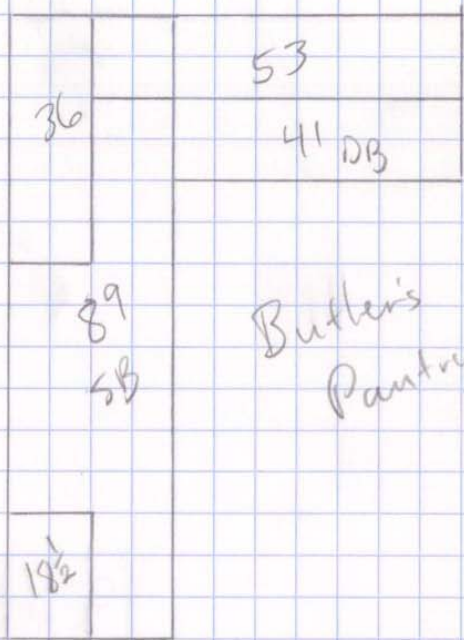 53
36
41 DB
89
SB
Butler's
Pantry
18½